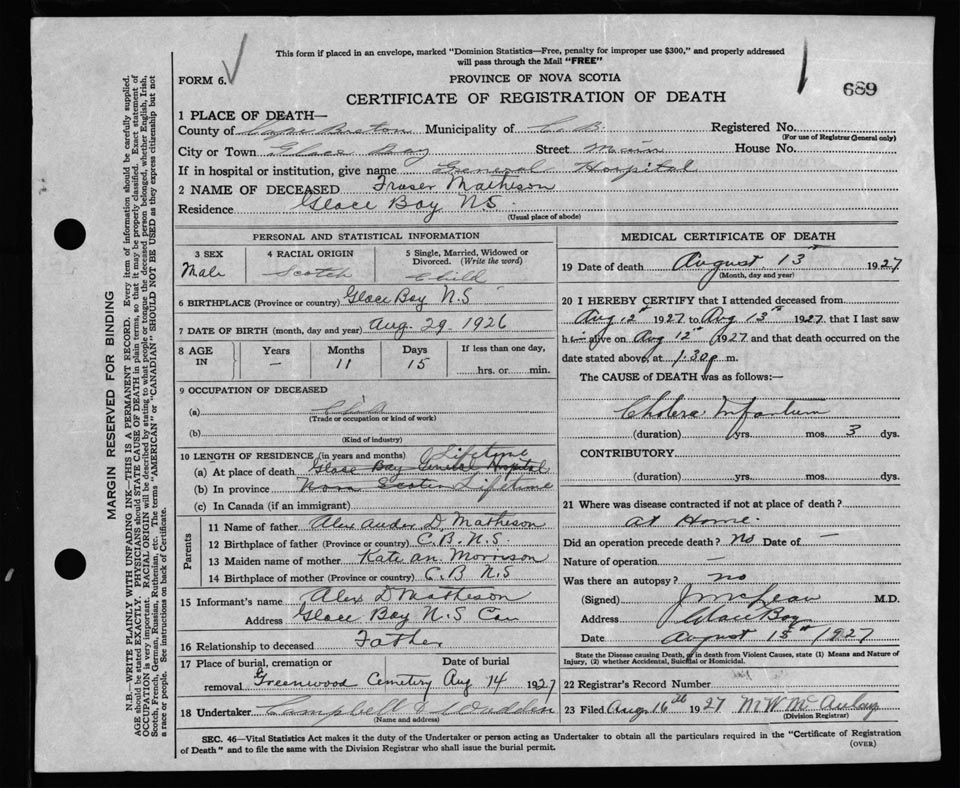 This form if placed in an envelope, marked "Dominion Statistics—Free, penalty for improper use $300," and properly addressed
will pass through the Mail "FREE"
FORM 6.
PROVINCE OF NOVA SCOTIA
689
CERTIFICATE OF REGISTRATION OF DEATH
1 PLACE OF DEATH—
County of Cape Breton Municipality of C. B. Registered No.
(For use of Registrar General only)
City or Town Glace Bay Street Main House No.
If in hospital or institution, give name General Hospital
2 NAME OF DECEASED Fraser Matheson
Residence Glace Bay N.S.
(Usual place of abode)
PERSONAL AND STATISTICAL INFORMATION
3 SEX 4 RACIAL ORIGIN 5 Single, Married, Widowed or
Divorced. (Write the word)
Male Scotch Child
6 BIRTHPLACE (Province or country) Glace Bay N.S
7 DATE OF BIRTH (month, day and year) Aug. 29. 1926
8 AGE IN Years Months Days If less than one day,
— 11 15 hrs. or min.
9 OCCUPATION OF DECEASED
(a) Child
(Trade or occupation or kind of work)
(b)
(Kind of industry)
10 LENGTH OF RESIDENCE (in years and months) Lifetime
(a) At place of death Glace Bay General Hospital
(b) In province Nova Scotia Lifetime
(c) In Canada (if an immigrant)
Parents
11 Name of father Alex Ander D. Matheson
12 Birthplace of father (Province or country) C.B. N.S.
13 Maiden name of mother Kate an Morrison
14 Birthplace of mother (Province or country) C.B N.S
15 Informant's name Alex D Matheson
Address Glace Bay N.S Can
16 Relationship to deceased Father
17 Place of burial, cremation or Date of burial
removal Greenwood Cemetery Aug 14 1927
18 Undertaker Campbell & Wadden
(Name and address)
MEDICAL CERTIFICATE OF DEATH
19 Date of death August 13th 1927
(Month, day and year)
20 I HEREBY CERTIFY that I attended deceased from
Aug. 12th 1927 to Aug 13th 1927, that I last saw
him alive on Aug 12th 1927 and that death occurred on the
date stated above, at 1.30 p m.
The CAUSE of DEATH was as follows:—
Cholera Infantum
(duration) yrs. mos. 3 dys.
CONTRIBUTORY
(duration) yrs. mos. dys.
21 Where was disease contracted if not at place of death?
at Home.
Did an operation precede death? No Date of —
Nature of operation —
Was there an autopsy? no
(Signed) J McLean M.D.
Address Glace Bay
Date August 15th 1927
State the Disease causing Death, or in death from Violent Causes, state (1) Means and Nature of
Injury, (2) whether Accidental, Suicidal or Homicidal.
22 Registrar's Record Number
23 Filed Aug. 16th 1927 M W McAulay
(Division Registrar)
SEC. 46—Vital Statistics Act makes it the duty of the Undertaker or person acting as Undertaker to obtain all the particulars required in the "Certificate of Registration
of Death" and to file the same with the Division Registrar who shall issue the burial permit.
(OVER)
MARGIN RESERVED FOR BINDING
N.B.—WRITE PLAINLY WITH UNFADING INK—THIS IS A PERMANENT RECORD. Every item of information should be carefully supplied.
AGE should be stated EXACTLY. PHYSICIANS should STATE CAUSE OF DEATH in plain terms, so that it may be properly classified. Exact statement of
OCCUPATION is very important. RACIAL ORIGIN will be described by stating to what people or tongue the deceased person belonged, whether English, Irish,
Scotch, French, German, Russian, Ruthenian, etc. The terms "AMERICAN" or "CANADIAN" SHOULD NOT BE USED as they express citizenship but not
a race or people. See instructions on back of Certificate.